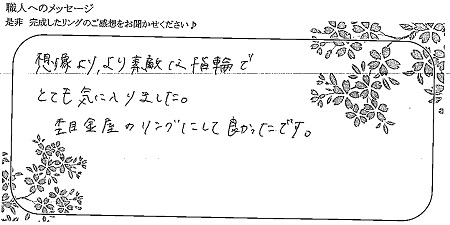 職人へのメッセージ
是非 完成したリングのご感想をお聞かせください♪
想像より、より素敵な指輪で
とても気に入りました。
杢目金屋のリングにして良かったです。